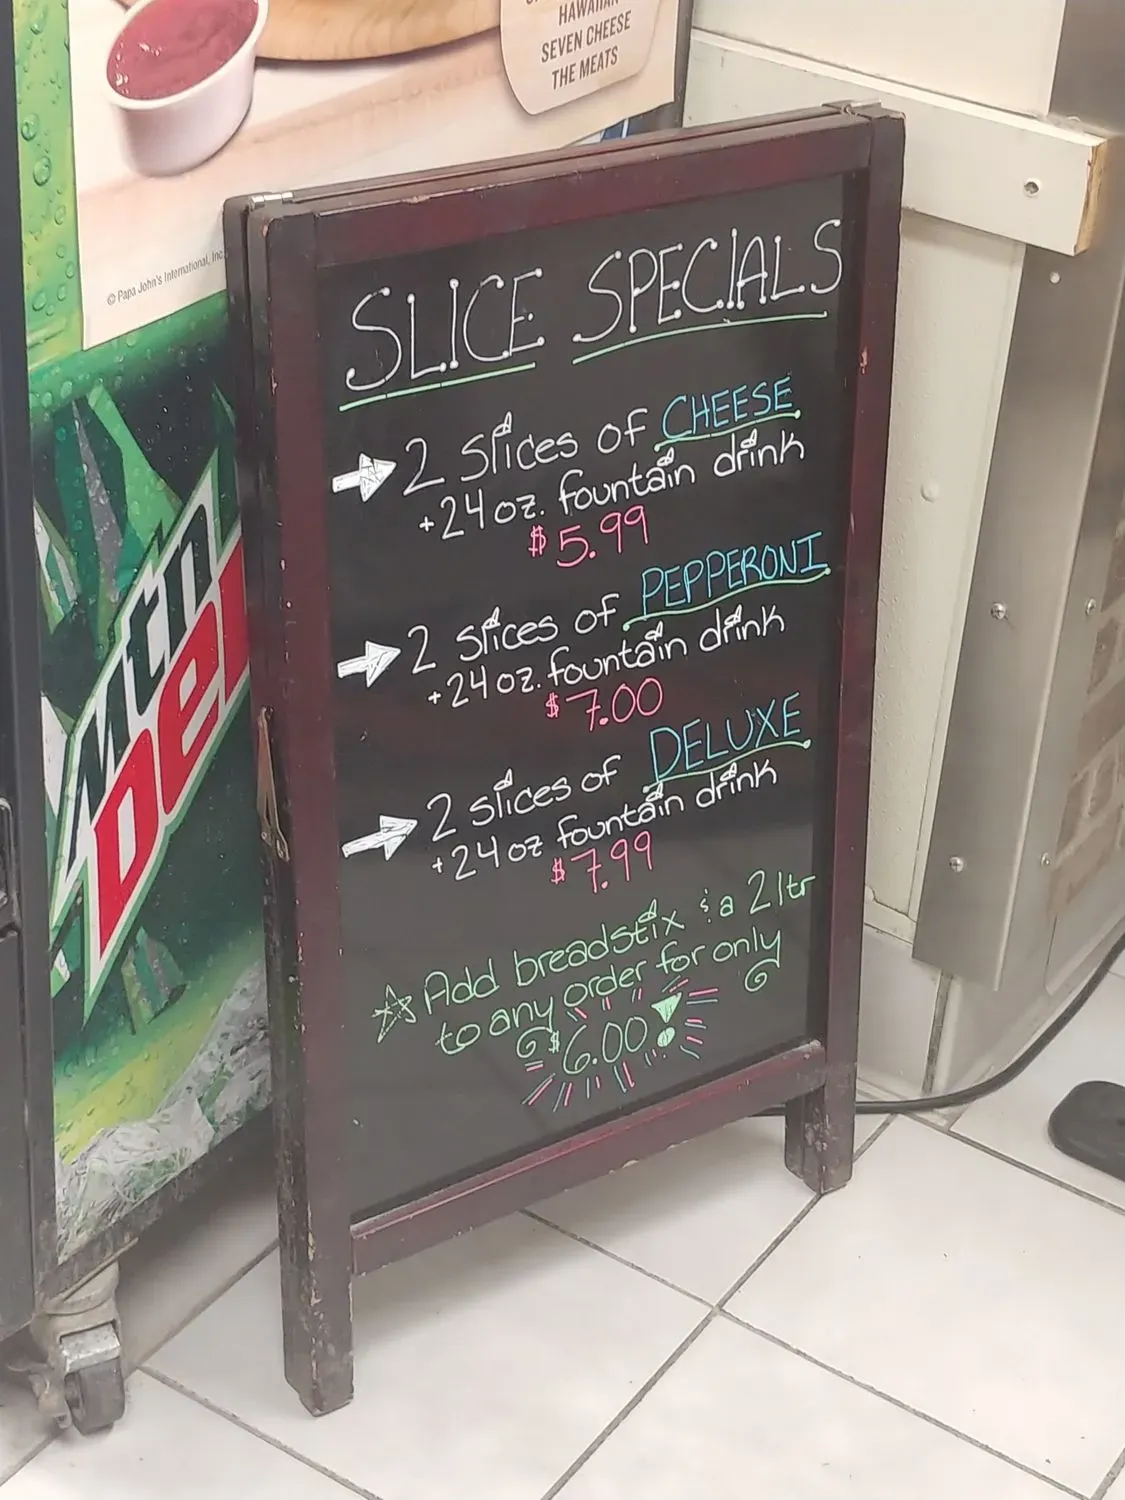 HAWAIIAN
SEVEN CHEESE
THE MEATS
© Papa John's International, Inc.
Mtn
Dew
SLICE SPECIALS
2 slices of CHEESE
+24oz. fountain drink
$5.99
2 slices of PEPPERONI
+24oz. fountain drink
$7.00
2 slices of DELUXE
+24oz fountain drink
$7.99
Add breadstix & a 2ltr
to any order for only
$6.00!